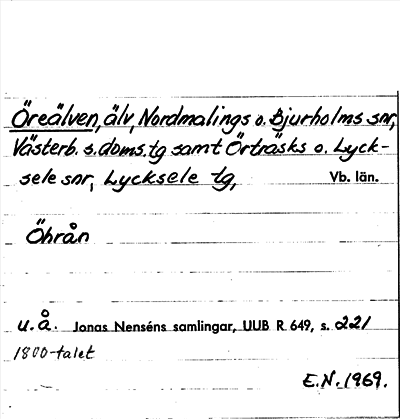 Öreälven, älv, Nordmalings o. Bjurholms snr,
Västerb. s. doms. tg samt Örträsks o. Lyck-
sele snr, Lycksele tg, Vb. län.
Öhrån
u. å. Jonas Nenséns samlingar, UUB R 649, s. 221
1800-talet
E.N. 1969.